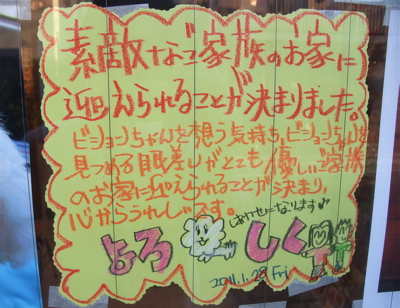 素敵なご家族のお家に
迎えられることが決まりました。
ビションちゃんを想う気持ち、ビションちゃんを
見つめる眼差しがとても優しいご家族
のお家に迎えられることが決まり、
心からうれしいです。
しあわせになります♪
よろしく
2011.1.28 Fri